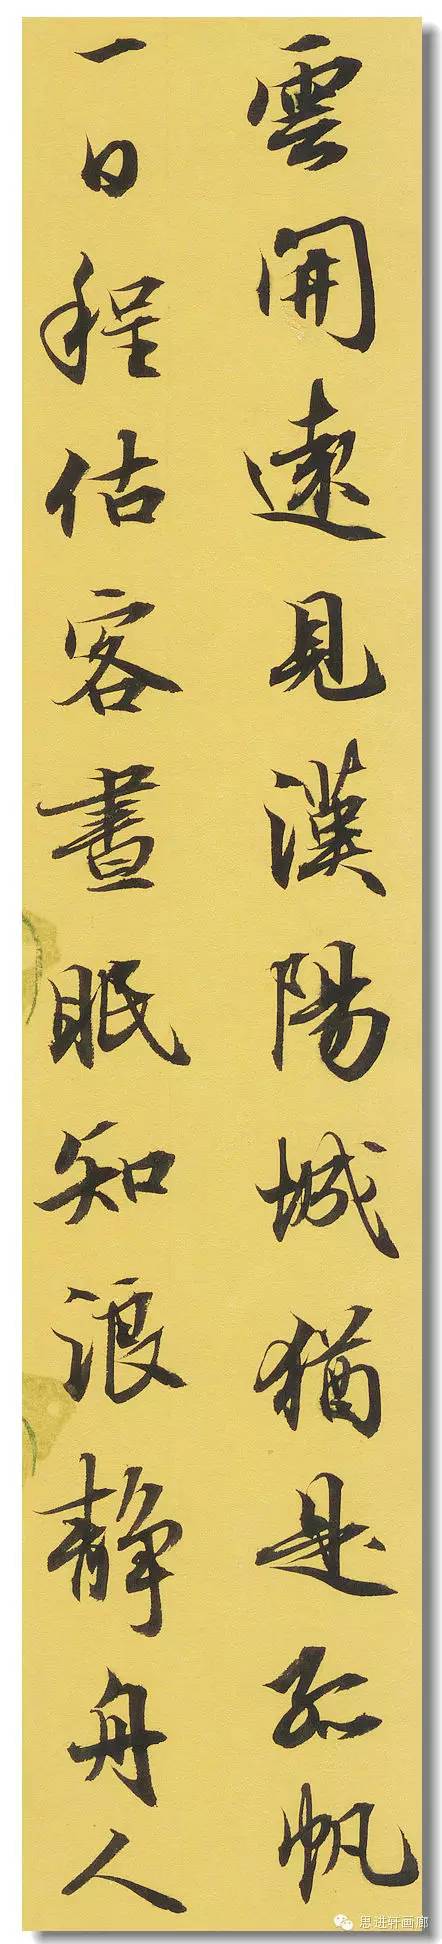 雲開遠見漢陽城猶是孤帆
一日程估客晝眠知浪靜舟人
思进轩画廊